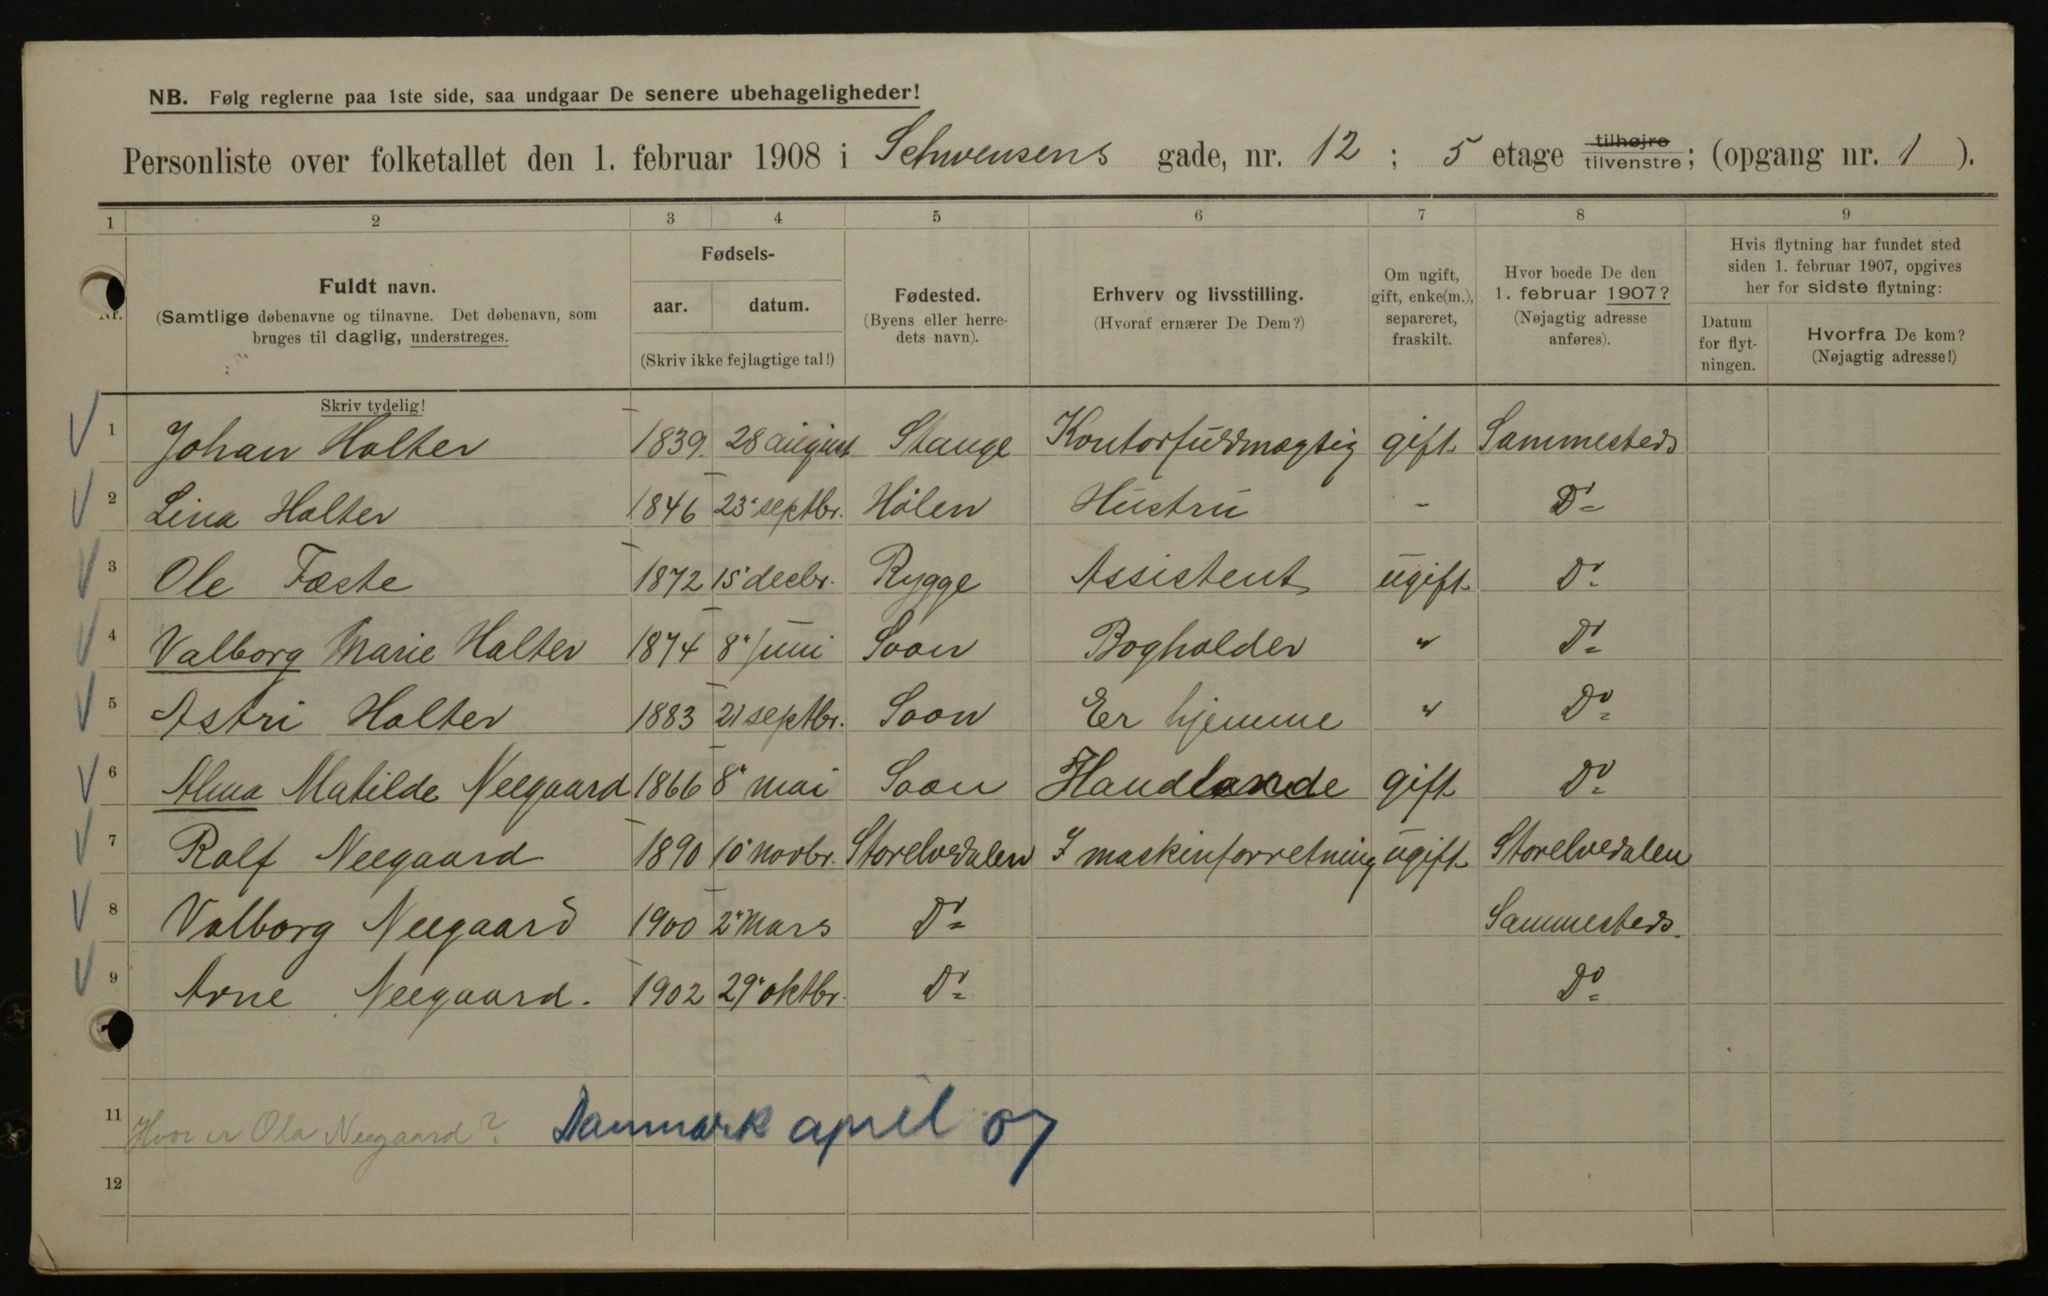 NB. Følg reglerne paa 1ste side, saa undgaar De senere ubehageligheder!
Personliste over folketallet den 1. februar 1908 i Schwensens gade, nr. 12 ; 5 etage tilhøjre tilvenstre; (opgang nr. 1 ).
1 2 3 4 5 6 7 8 9
Nr.
Fuldt navn.
(Samtlige døbenavne og tilnavne. Det døbenavn, som
bruges til daglig, understreges.
Skriv tydelig!
Fødsels-
aar. datum.
(Skriv ikke fejlagtige tal!)
Fødested.
(Byens eller herre-
dets navn).
Erhverv og livsstilling.
(Hvoraf ernærer De Dem?)
Om ugift,
gift, enke(m.),
separeret,
fraskilt.
Hvor boede De den
1. februar 1907?
(Nøjagtig adresse
anføres).
Hvis flytning har fundet sted
siden 1. februar 1907, opgives
her for sidste flytning:
Datum
for flyt-
ningen.
Hvorfra De kom?
(Nøjagtig adresse!)
1 Johan Halter 1839. 28 august Stange Kontorfuldmægtig gift Sammesteds
2 Lina Halter 1846 23 septbr. Hølen Hustru - Do
3 Ole Fæste 1872 15 decbr. Rygge Assistent ugift Do
4 Valborg Marie Halter 1874 8 juni Soon Bogholder " Do
5 Astri Halter 1883 21 septbr. Soon Er hjemme " Do
6 Alma Matilde Neegaard 1866 8 mai Soon Handlende gift Do
7 Rolf Neegaard 1890 10 novbr. Storelvedalen I maskinforretning ugift Storelvedalen
8 Valborg Neegaard 1900 2 Mars Do Sammesteds.
9 Arne Neegaard. 1902 29 oktbr. Do Do
11 Hvor er Ola Neegaard? Danmark april 07
12